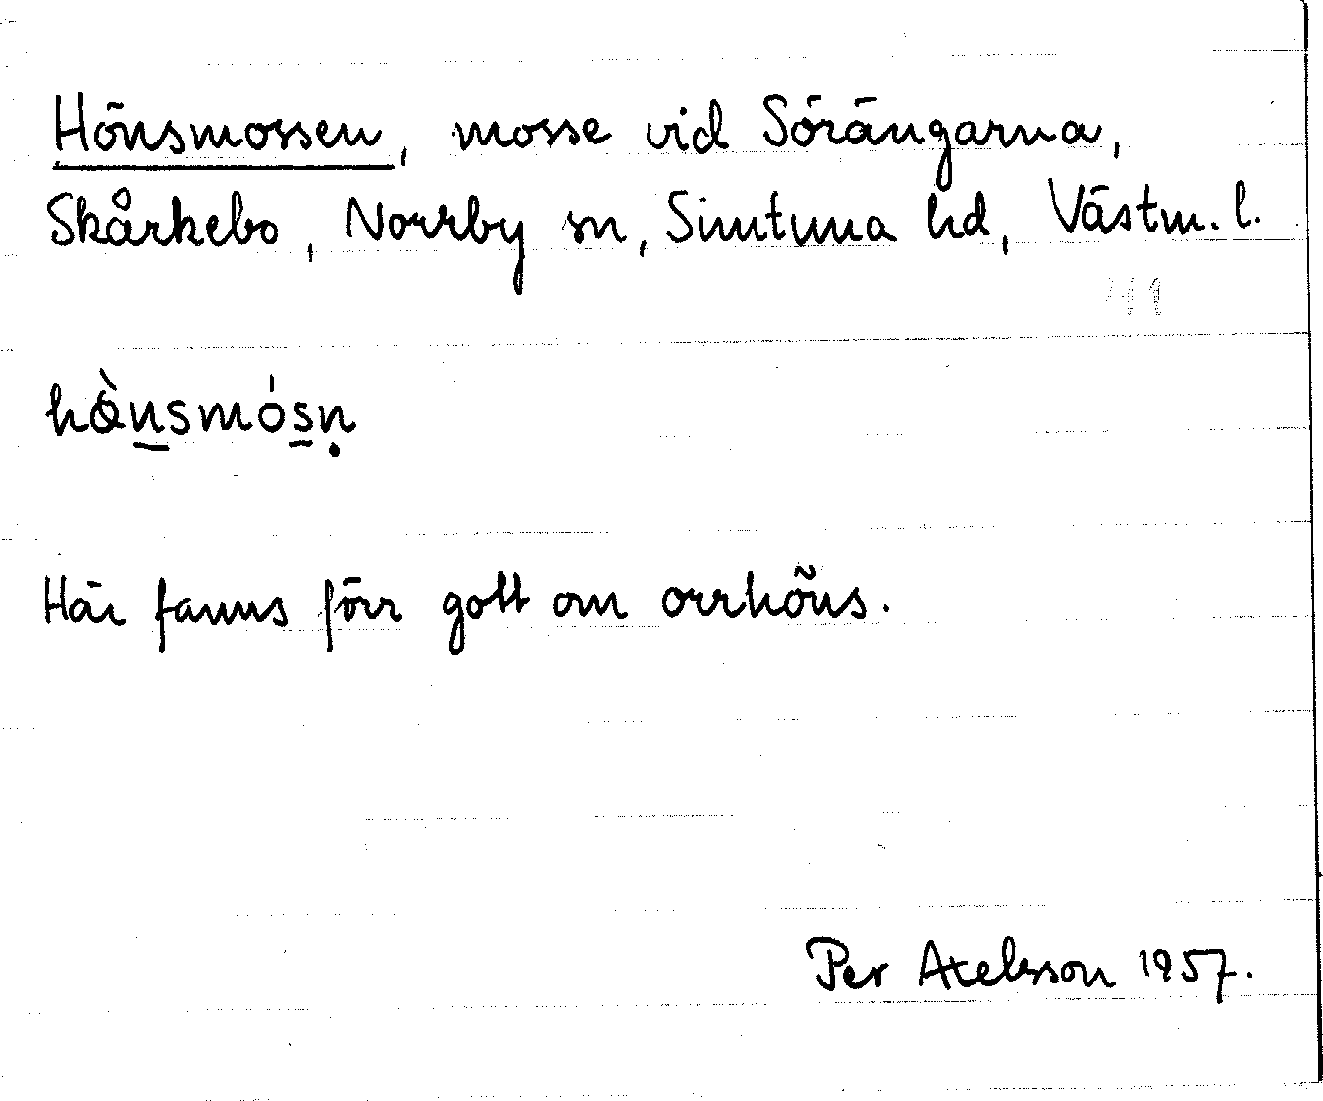 Hönsmossen, mosse vid Sörängarna,
Skårkebo, Norrby sn, Simtuna hd, Västm. l.
hø̀n̲smós̲ṇ
Här fanns förr gott om orrhöns.
Per Axelsson 1957.